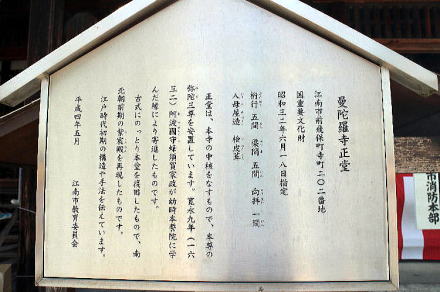 曼陀羅寺正堂
江南市前飛保町寺町二〇二番地
国重要文化財
昭和三二年六月一八日指定
桁行 五間 梁間 五間 向拝 一間
入母屋造 檜皮葺
正堂は、本寺の中核をなすもので、本尊の
弥陀三尊を安置しています。寛永九年(一六
三二)阿波國守蜂須賀家政が幼時本誓院に学
んだ縁により寄進したものです。
古式にのっとり本堂を復旧したもので、南
北朝前期の紫宸殿を再現したものです。
江戸時代初期の構造や手法を伝えています。
平成四年五月
江南市教育委員会
市消防本部